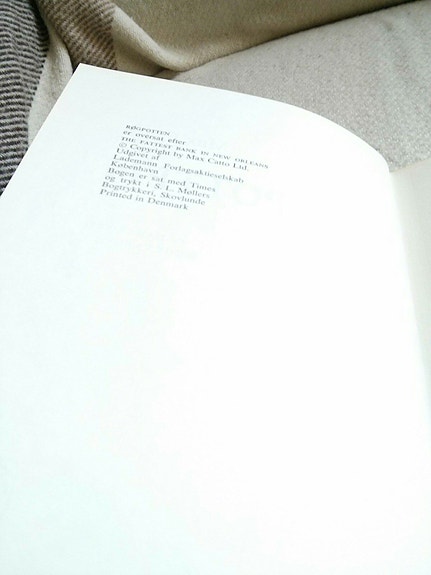 BØGPOTTEN
er oversat efter
THE FATTEST BANK IN NEW ORLEANS
© Copyright by Max Catto Ltd.
Udgivet af
Lademann Forlagsaktieselskab
København
Bogen er sat med Times
og trykt i S. L. Møllers
Bogtrykkeri, Skovlunde
Printed in Denmark